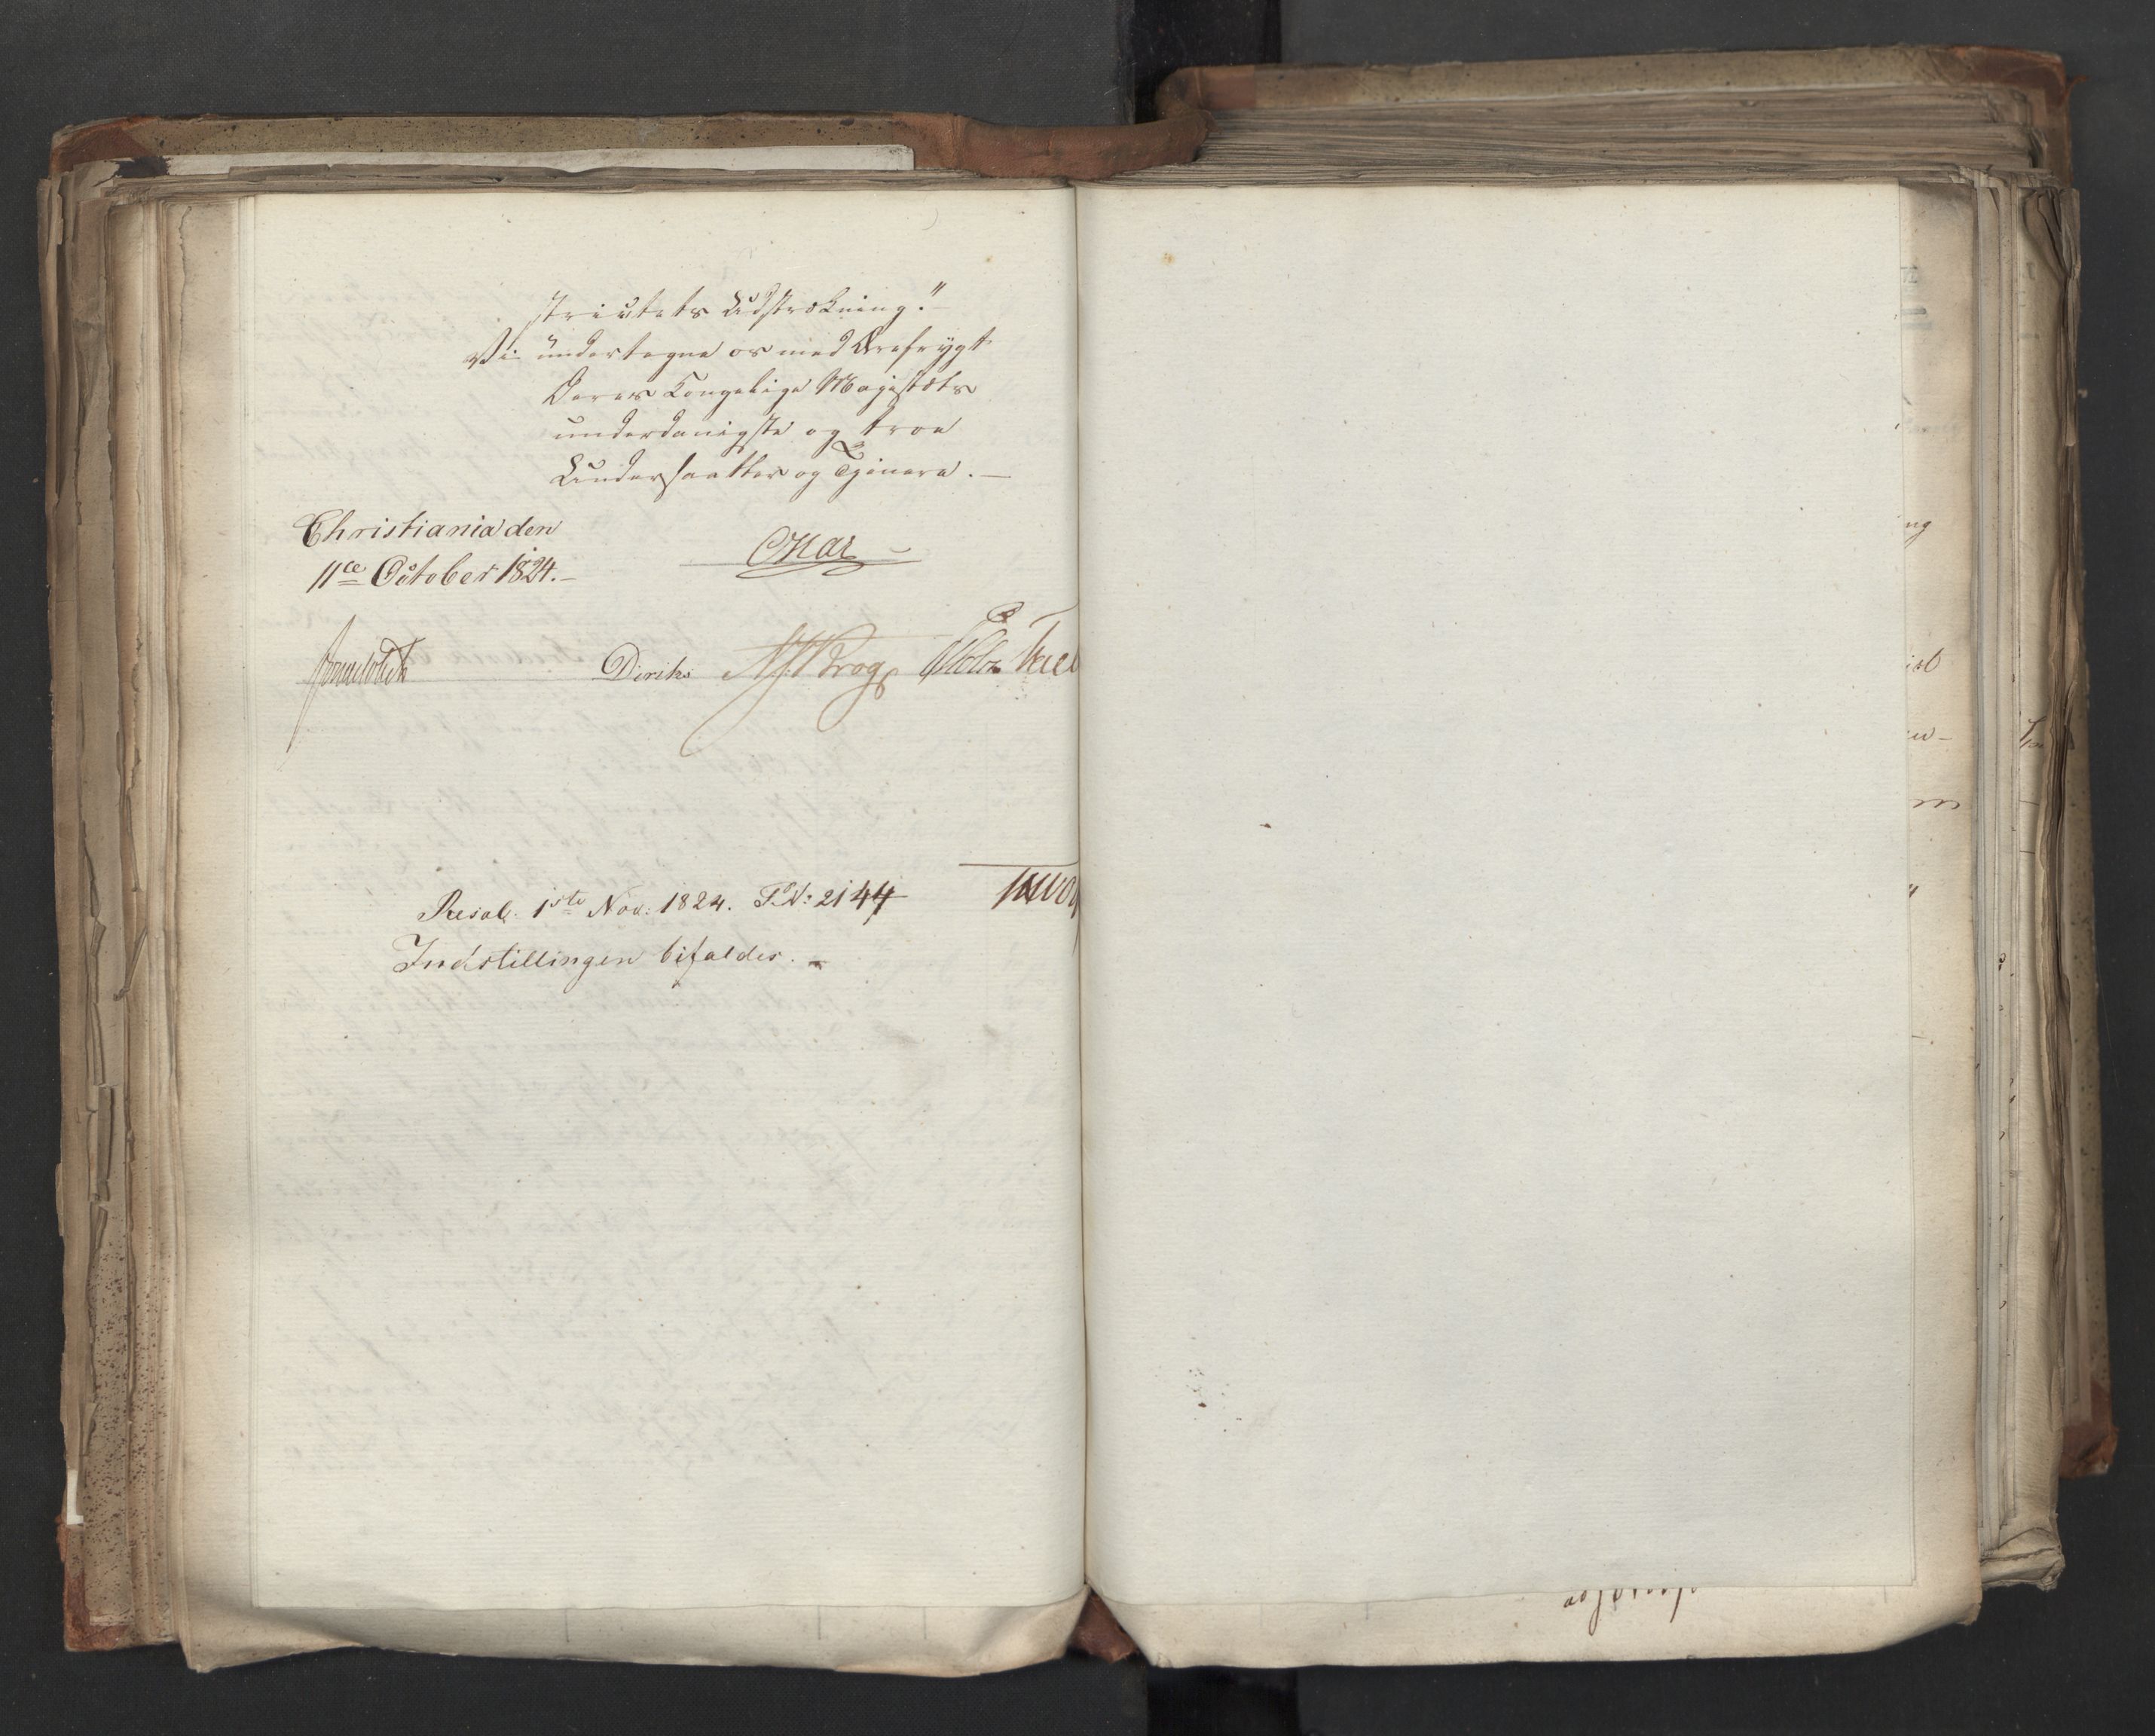 strictets Udstrækning."
Vi undertegne os med Ærefrygt
Deres Kongelige Majestæts
underdanigste og troe
Undersaatter og Tjenere. —
Christiania den
11te October 1824. —
Diriks
Resol. 1ste Nov: 1824. P. N: 2144
Indstillingen bifaldes. —